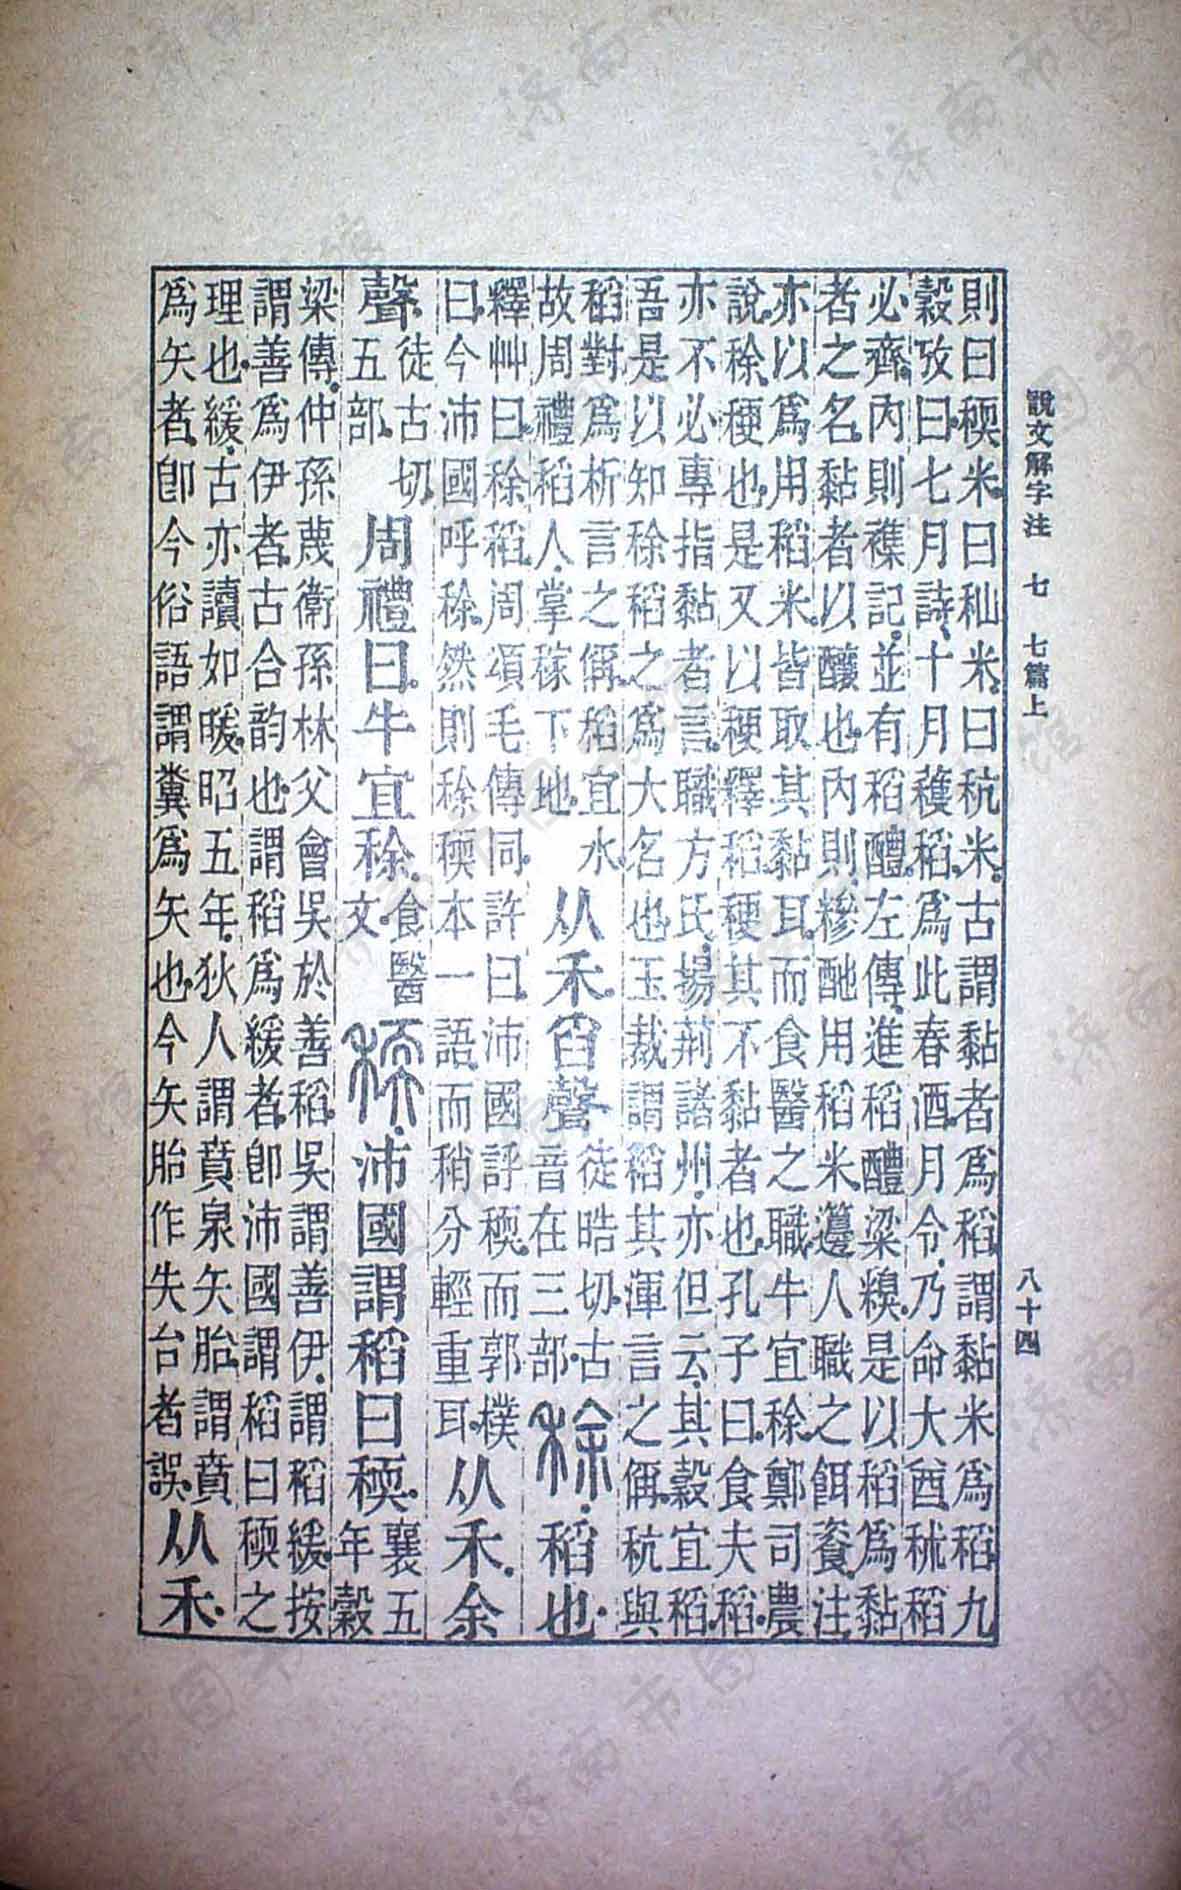 說文解字注　七　七篇上
八十四
則曰稬米曰秈米曰秔米古謂黏者爲稻謂黏米爲稻九
穀攷曰七月詩十月穫稻爲此春酒月令乃命大酋秫稻
必齊內則襍記並有稻醴左傳進稻醴粱糗是以稻爲黏
者之名黏者以釀也內則糝酏用稻米籩人職之餌餈注
亦以爲用稻米皆取其黏耳而食醫之職牛宜稌鄭司農
說稌稉也是又以稉釋稻稉其不黏者也孔子曰食夫稻
亦不必專指黏者言職方氏揚荆諸州亦但云其穀宜稻
吾是以知稌稻之爲大名也玉裁謂稻其渾言之偁秔與
稻對爲析言之偁稻宜水故周禮稻人掌稼下地从禾舀聲徒晧切古音在三部稌稻也
釋艸曰稌稻周頌毛傳同許曰沛國評稬而郭樸曰今沛國呼稌然則稌稬本一語而稍分輕重耳从禾余
聲徒古切五部周禮曰牛宜稌食醫文稬沛國謂稻曰稬襄五年穀
梁傳仲孫蔑衞孫林父會吳於善稻吳謂善伊謂稻緩按
謂善爲伊者古合韵也謂稻爲緩者卽沛國謂稻曰稬之
理也緩古亦讀如暖昭五年狄人謂賁泉矢胎謂賁爲矢者卽今俗語謂糞爲矢也今矢胎作失台者誤从禾